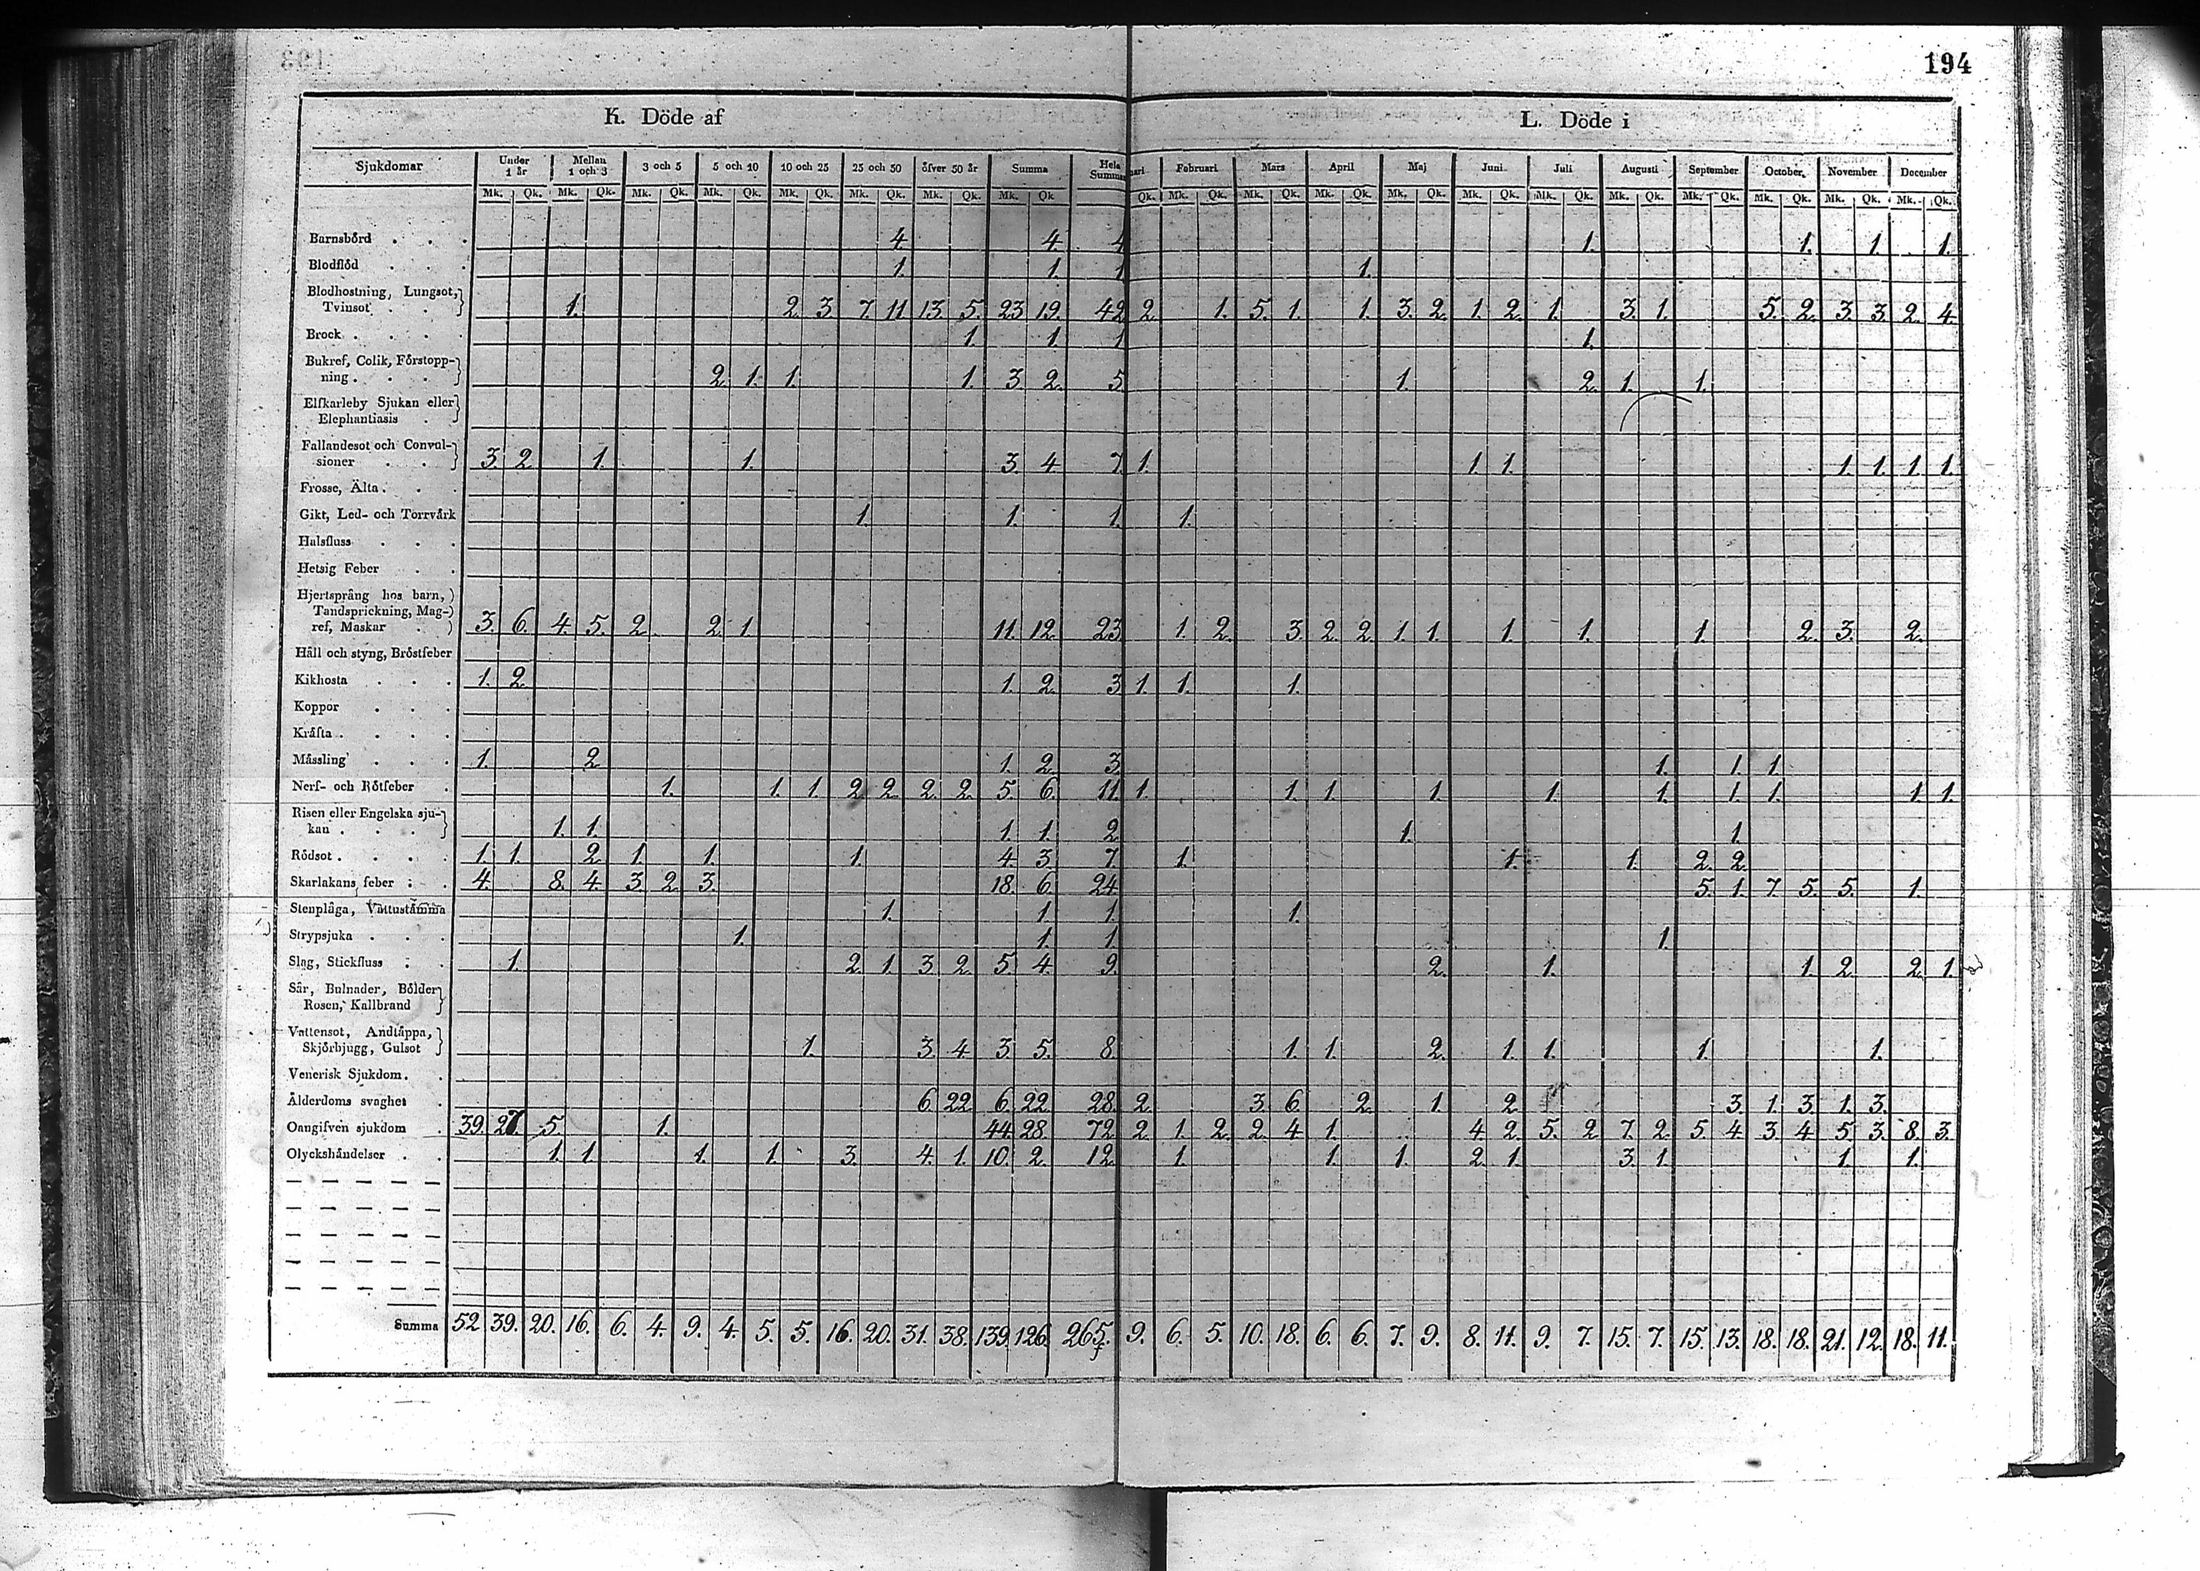 194
K. Döde af L. Döde i
Sjukdomar Under 1 år Mellan 1 och 3 3 och 5 5 och 10 10 och 25 25 och 50 öfver 50 år Summa Hela Summan Februari Mars April Maj Juni Juli Augusti September October November December
Mk. Qk. Mk. Qk. Mk. Qk. Mk. Qk. Mk. Qk. Mk. Qk. Mk. Qk. Mk. Qk. Qk. Mk. Qk. Mk. Qk. Mk. Qk. Mk. Qk. Mk. Qk. Mk. Qk. Mk. Qk. Mk. Qk. Mk. Qk. Mk. Qk. Mk. Qk.
Barnsbörd . . . 4. 4. 4 1. 1. 1. 1.
Blodflöd . . . 1. 1. 1 1.
Blodhostning, Lungsot,
Tvinsot . . 1. 2. 3. 7. 11. 13. 5. 23. 19. 42 2. 1. 5. 1. 1. 3. 2. 1. 2. 1. 3. 1. 5. 2. 3. 3. 2. 4.
Brock . . . . 1. 1. 1 1.
Bukref, Colik, Förstopp-
ning . . . . 2. 1. 1. 1. 3. 2. 5 1. 2. 1. 1.
Elfkarleby Sjukan eller
Elephantiasis .
Fallandesot och Convul-
sioner . . . 3. 2. 1. 1. 3. 4. 7. 1. 1. 1. 1. 1. 1. 1.
Frosse, Älta . . .
Gikt, Led- och Torrvärk 1. 1. 1. 1.
Halsfluss . . .
Hetsig Feber . .
Hjertsprång hos barn,
Tandsprickning, Mag-
ref, Maskar . 3. 6. 4. 5. 2. 2. 1. 11. 12. 23 1. 2. 3. 2. 2. 1. 1. 1. 1. 1. 2. 3. 2.
Håll och styng, Bröstfeber
Kikhosta . . . 1. 2. 1. 2. 3 1. 1. 1.
Koppor . . .
Kräfta . . . .
Mässling . . . 1. 2. 1. 2. 3. 1. 1. 1.
Nerf- och Rötfeber . 1. 1. 1. 2. 2. 2. 2. 5. 6. 11. 1. 1. 1. 1. 1. 1. 1. 1. 1. 1.
Risen eller Engelska sju-
kan . . . . 1. 1. 1. 1. 2. 1. 1.
Rödsot . . . . 1. 1. 2. 1. 1. 1. 4. 3. 7. 1. 1. 1. 2. 2.
Skarlakans feber . . 4. 8. 4. 3. 2. 3. 18. 6. 24. 5. 1. 7. 5. 5. 1.
Stenplåga, Vattustämma 1. 1. 1. 1.
Strypsjuka . . . 1. 1. 1. 1.
Slag, Stickfluss . . 1. 2. 1. 3. 2. 5. 4. 9. 2. 1. 1. 2. 2. 1.
Sår, Bulnader, Bölder
Rosen, Kallbrand
Vattensot, Andtäppa,
Skjörbjugg, Gulsot 1. 3. 4. 3. 5. 8. 1. 1. 2. 1. 1. 1. 1.
Venerisk Sjukdom . .
Ålderdoms svaghet . 6. 22. 6. 22. 28. 2. 3. 6. 2. 1. 2. 3. 1. 3. 1. 3.
Oangifven sjukdom . 39. 27. 5. 1. 44. 28. 72. 2. 1. 2. 2. 4. 1. 4. 2. 5. 2. 7. 2. 5. 4. 3. 4. 5. 3. 8. 3.
Olyckshändelser . . 1. 1. 1. 1. 3. 4. 1. 10. 2. 12. 1. 1. 1. 2. 1. 3. 1. 1. 1.
Summa 52. 39. 20. 16. 6. 4. 9. 4. 5. 5. 16. 20. 31. 38. 139. 126. 265. 9. 6. 5. 10. 18. 6. 6. 7. 9. 8. 11. 9. 7. 15. 7. 15. 13. 18. 18. 21. 12. 18. 11.